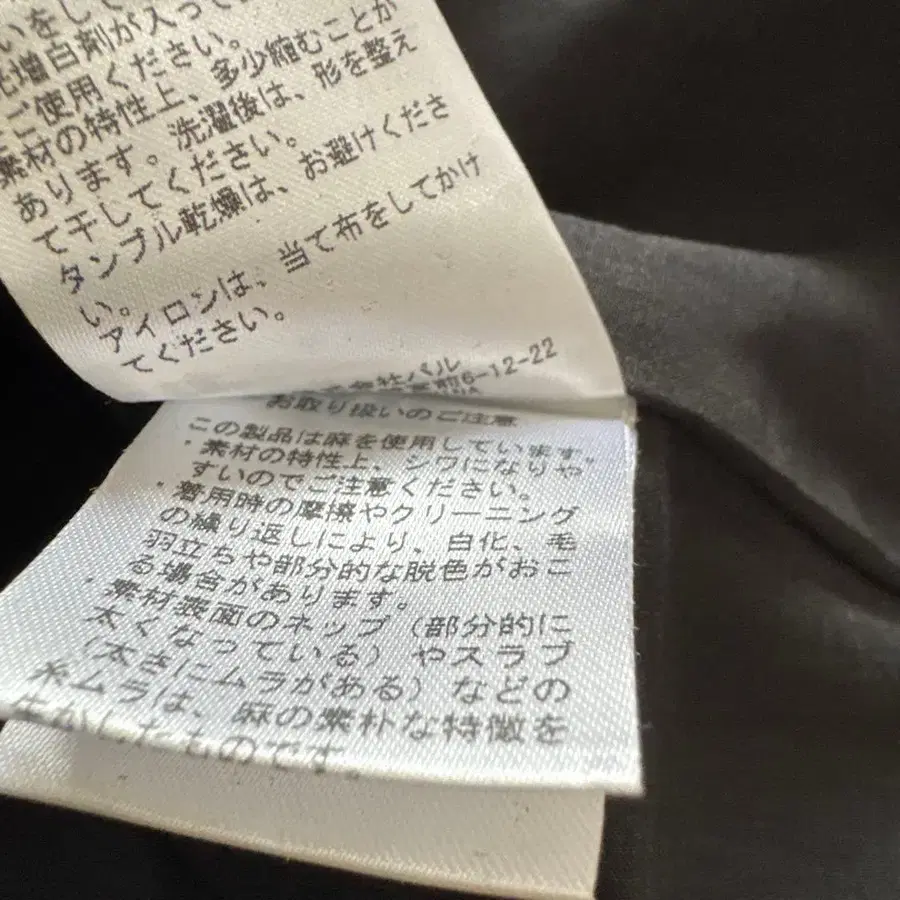 いをして
光増白剤が入って
ご使用ください。
素材の特性上、多少縮むことが
あります。洗濯後は、形を整え
て干してください。
タンブル乾燥は、お避けくださ
い。
アイロンは、当て布をしてかけ
てください。
会社パル
6-12-22
お取り扱いのご注意
この製品は麻を使用しています。
・素材の特性上、シワになりや
すいのでご注意ください。
・着用時の摩擦やクリーニング
の繰り返しにより、白化、毛
羽立ちや部分的な脱色がおこ
る場合があります。
・素材表面のネップ（部分的に
太くなっている）やスラブ
（太さにムラがある）などの
糸ムラは、麻の素朴な特徴を
生かしたものです。